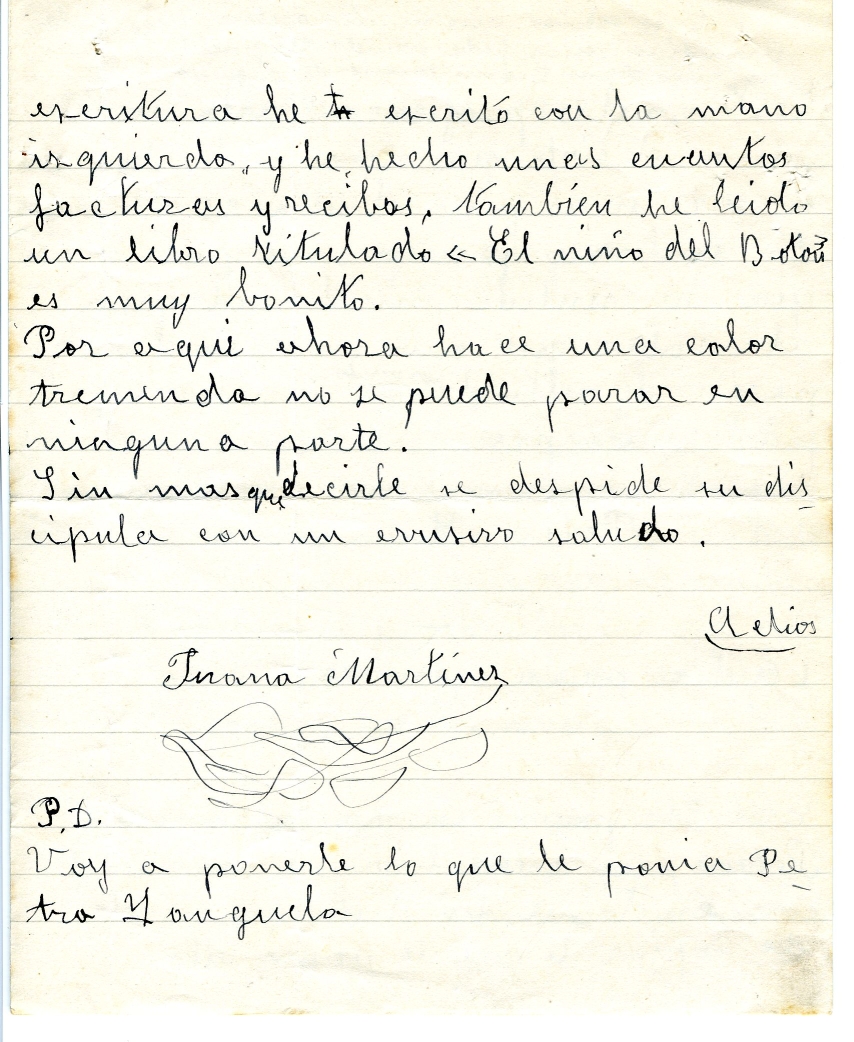 escritura he escritó con la mano
izquierda, y he, hecho unas cuantas
facturas y recibos, también he leido
un libro titulado « El niño del Botón»
es muy bonito.
Por aqui ahora hace una calor
tremenda no se puede parar en
ninguna parte.
Sin mas que decirle se despide su dis-
cipula con un efusivo saludo.
Adios
Juana Martínez
P.D.
Voy a ponerle lo que le ponia Pe-
tra Yanguela